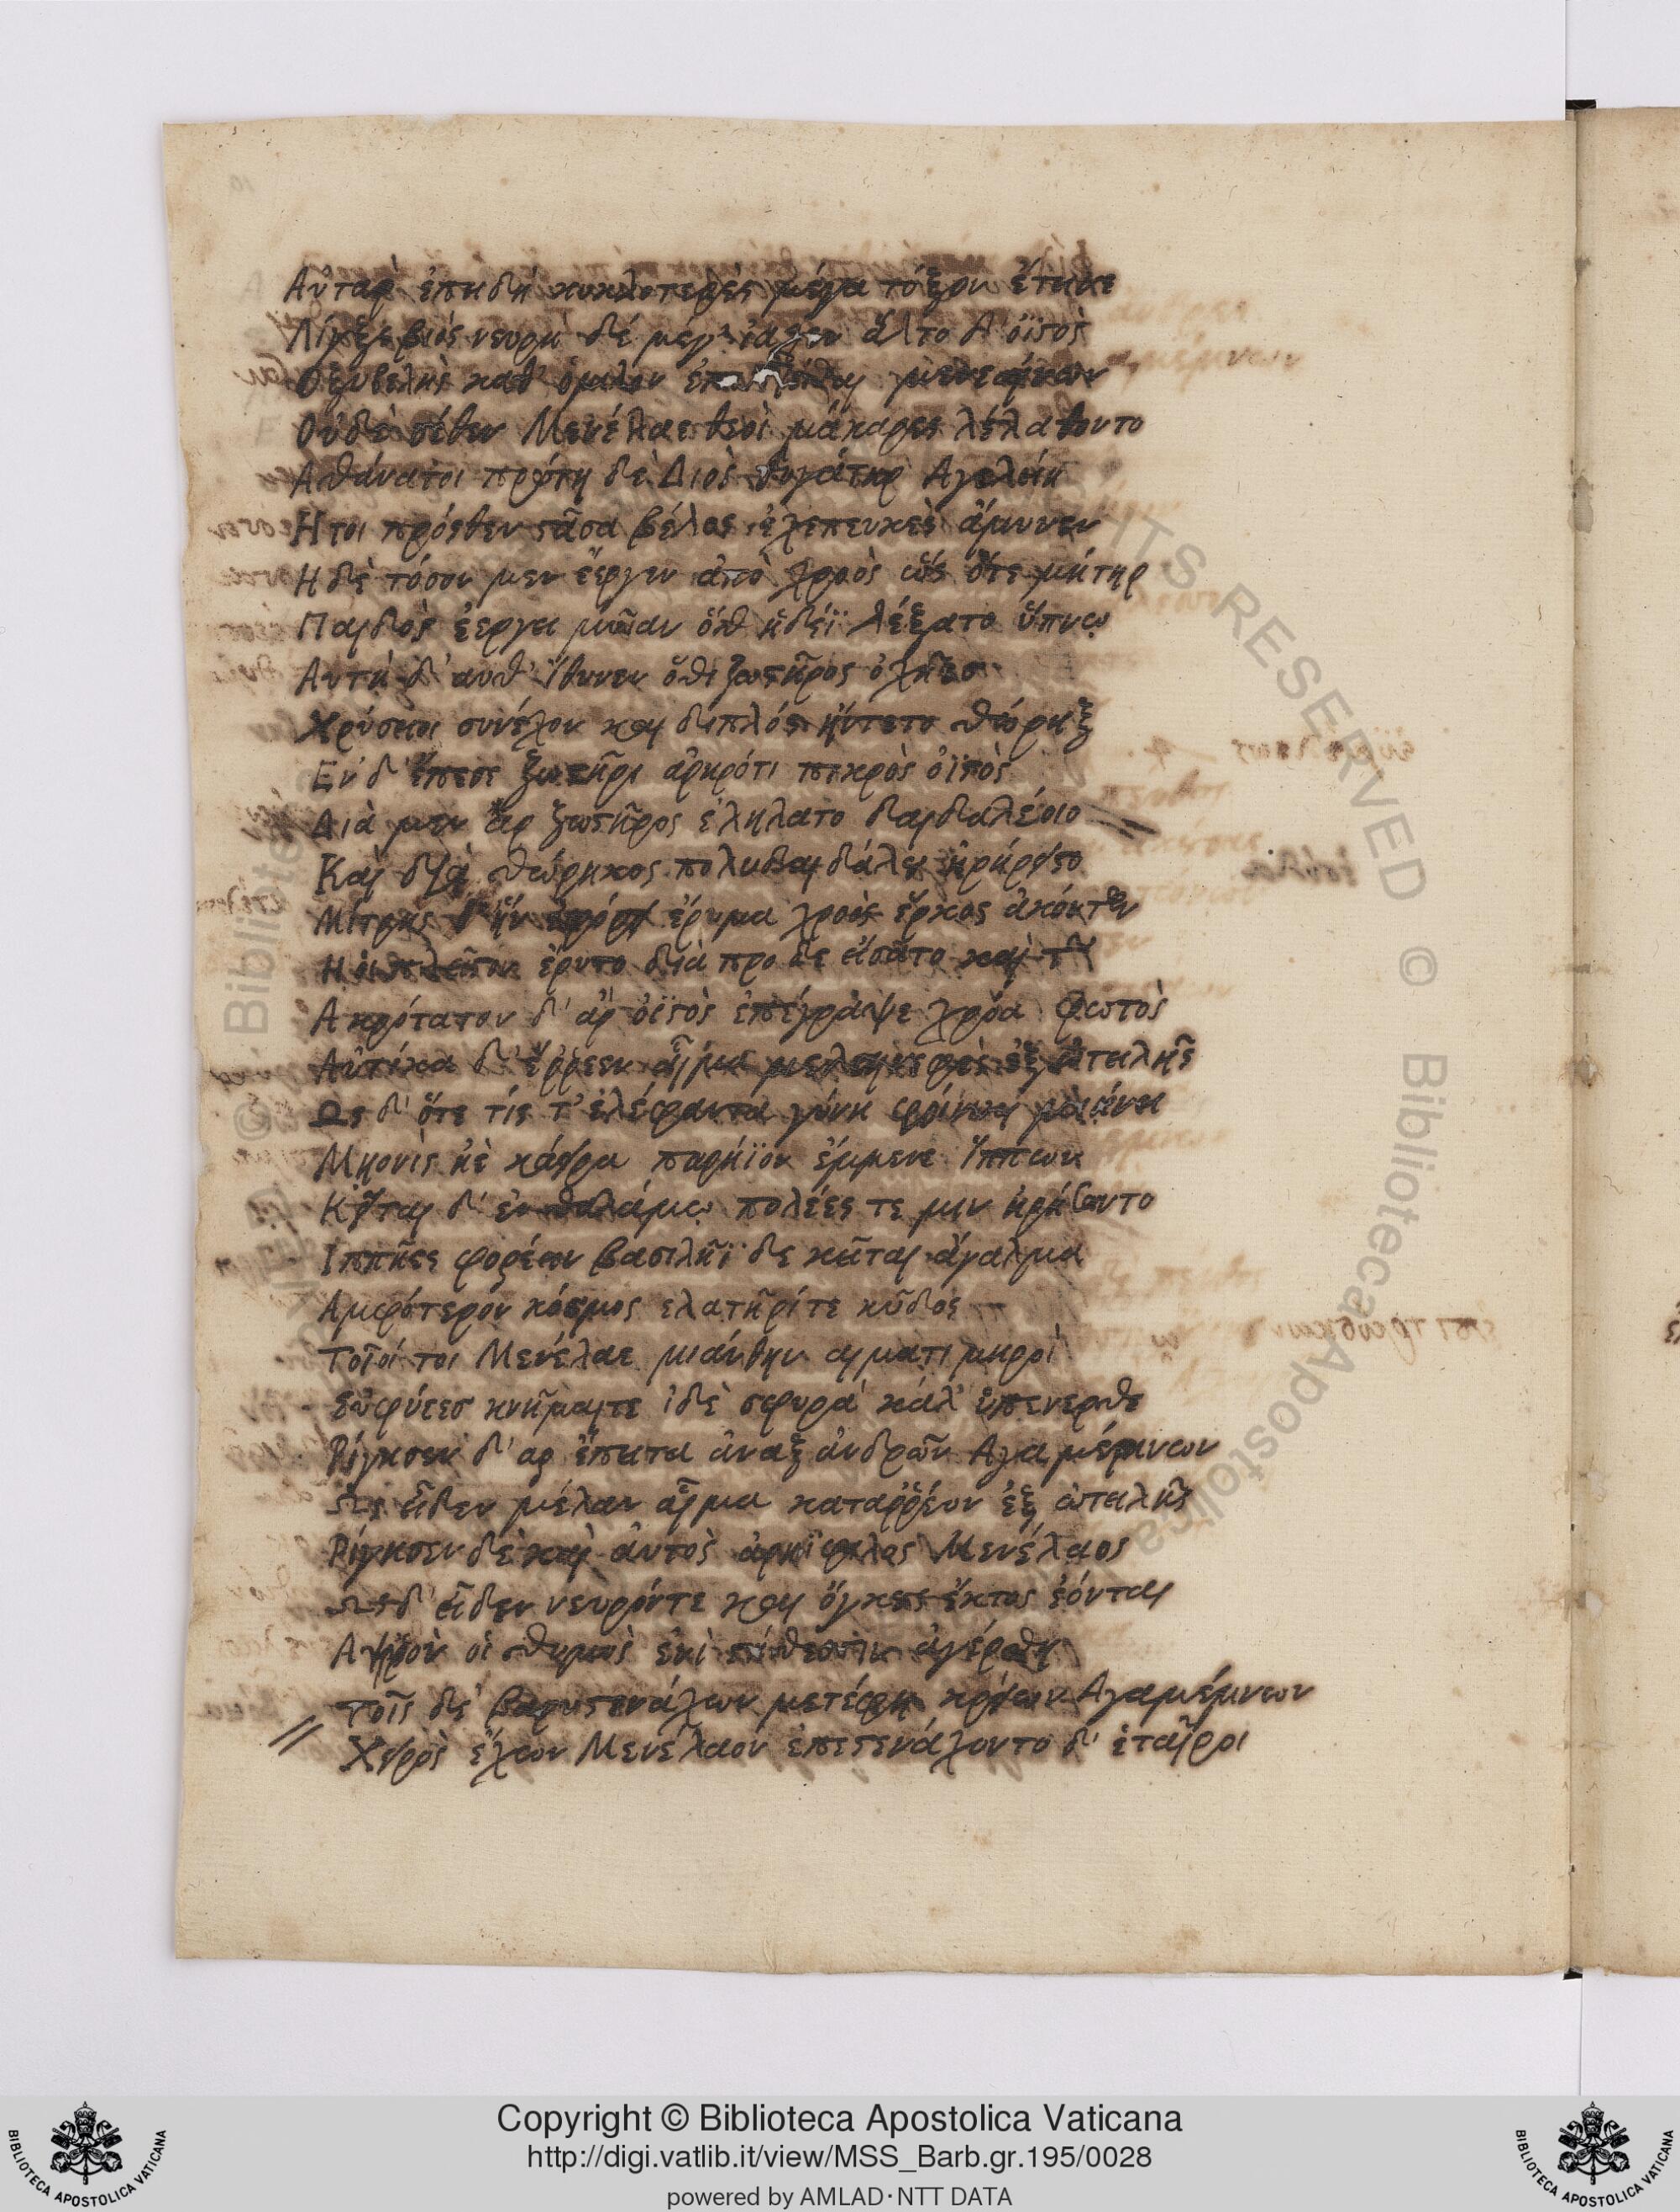 Αὐτὰρ ἐπειδὴ κυκλοτερὲς μέγα τόξον ἔτεινε
Λίγξε βιὸς νευρὴ δὲ μεγ' ἴαχεν ἄλτο δ' ὀϊστὸς
Οξυβελὴς καθ' ὅμιλον μενεαίνων
Οὐδὲ σέθεν Μενέλαε θεοὶ μάκαρες λελάθοντο
Αθάνατοι πρώτη δὲ Διὸς θυγάτηρ Αγελείη
Ητοι πρόσθεν στᾶσα βέλος ἐχεπευκὲς ἄμυνεν
Η δὲ τόσον μεν ἔεργεν ἀπὸ χροὸς ὡς ὅτε μήτηρ
Παιδὸς ἐέργει μυῖαν ὅθ' ἡδέϊ λέξατο ὕπνῳ
Αυτὴ δ' αυθ' ἴθυνεν ὅθι ζωστῆρος ὀχῆες
Χρύσειοι συνέχον και διπλόος ἤντετο θώρηξ
Εν δ' ἔπεσε ζωστῆρι ἀρηρότι πικρὸς ὀϊστὸς
Διὰ μεν ἂρ ζωστῆρος ἐλήλατο δαιδαλέοιο
Καὶ διὰ θώρηκος πολυδαιδάλου ἠρήρειστο
Μίτρης ἣν ἐφόρει ἔρυμα χροὸς ἕρκος ἀκόντων
Η οἱ πλεῖστον ἔρυτο διὰ προ δε εἴσατο καὶ τῆς
Ακρότατον δ' ἂρ ὀϊστὸς ἐπέγραψε χρόα φωτὸς
Αὐτίκα δ' ἔρρεεν αἷμα κελαινεφὲς ἐξ ὠτειλῆς
Ως δ' ὅτε τίς τ' ἐλέφαντα γύνη φοίνικι μιαίνει
Μηονὶς ἠὲ κάειρα παρήϊον ἔμμενε ἵππων
Κεῖται δ' ἐν θαλάμῳ πολέες τε μιν ἠρήσαντο
Ιππῆες φορέειν βασιλῆϊ δε κεῖται ἄγαλμα
Αμφότερον κόσμος ελατῆρίτε κῦδος
Τοῖοί τοι Μενέλαε μιάνθην αιματι μηροὶ
Εὐφύεεσ κνῆμαιτε ἰδὲ σφυρα κάλ' ὑπένερθε
Ρίγησεν δ' αρ ἔπειτα ἄναξ ἀνδρῶν Αγαμέμνων
Ως εἶδεν μέλαν αἷμα καταρρέον ἐξ ὠτειλῆς
Ρίγησεν δὲ καὶ ἀυτὸς ἀρηΐφιλος Μενέλαος
Ως δ' εἶδεν νευρόντε και ὄγκους ἔκτος ἐόντας
Αψορρόν οἱ θυμὸς ἐνὶ στήθεσσιν ἀγέρθη
Τοῖς δὲ βαρυστενάχων μετέφη κρείων Αγαμέμνων
Χειρὸς ἔχων Μενέλαον ἐπεστενάχοντο δ' ἑταῖροι
RIGHTS RESERVED © Biblioteca Apostolica
© Biblioteca
Copyright © Biblioteca Apostolica Vaticana
http://digi.vatlib.it/view/MSS_Barb.gr.195/0028
powered by AMLAD·NTT DATA
BIBLIOTECA APOSTOLICA VATICANA
BIBLIOTECA APOSTOLICA VATICANA